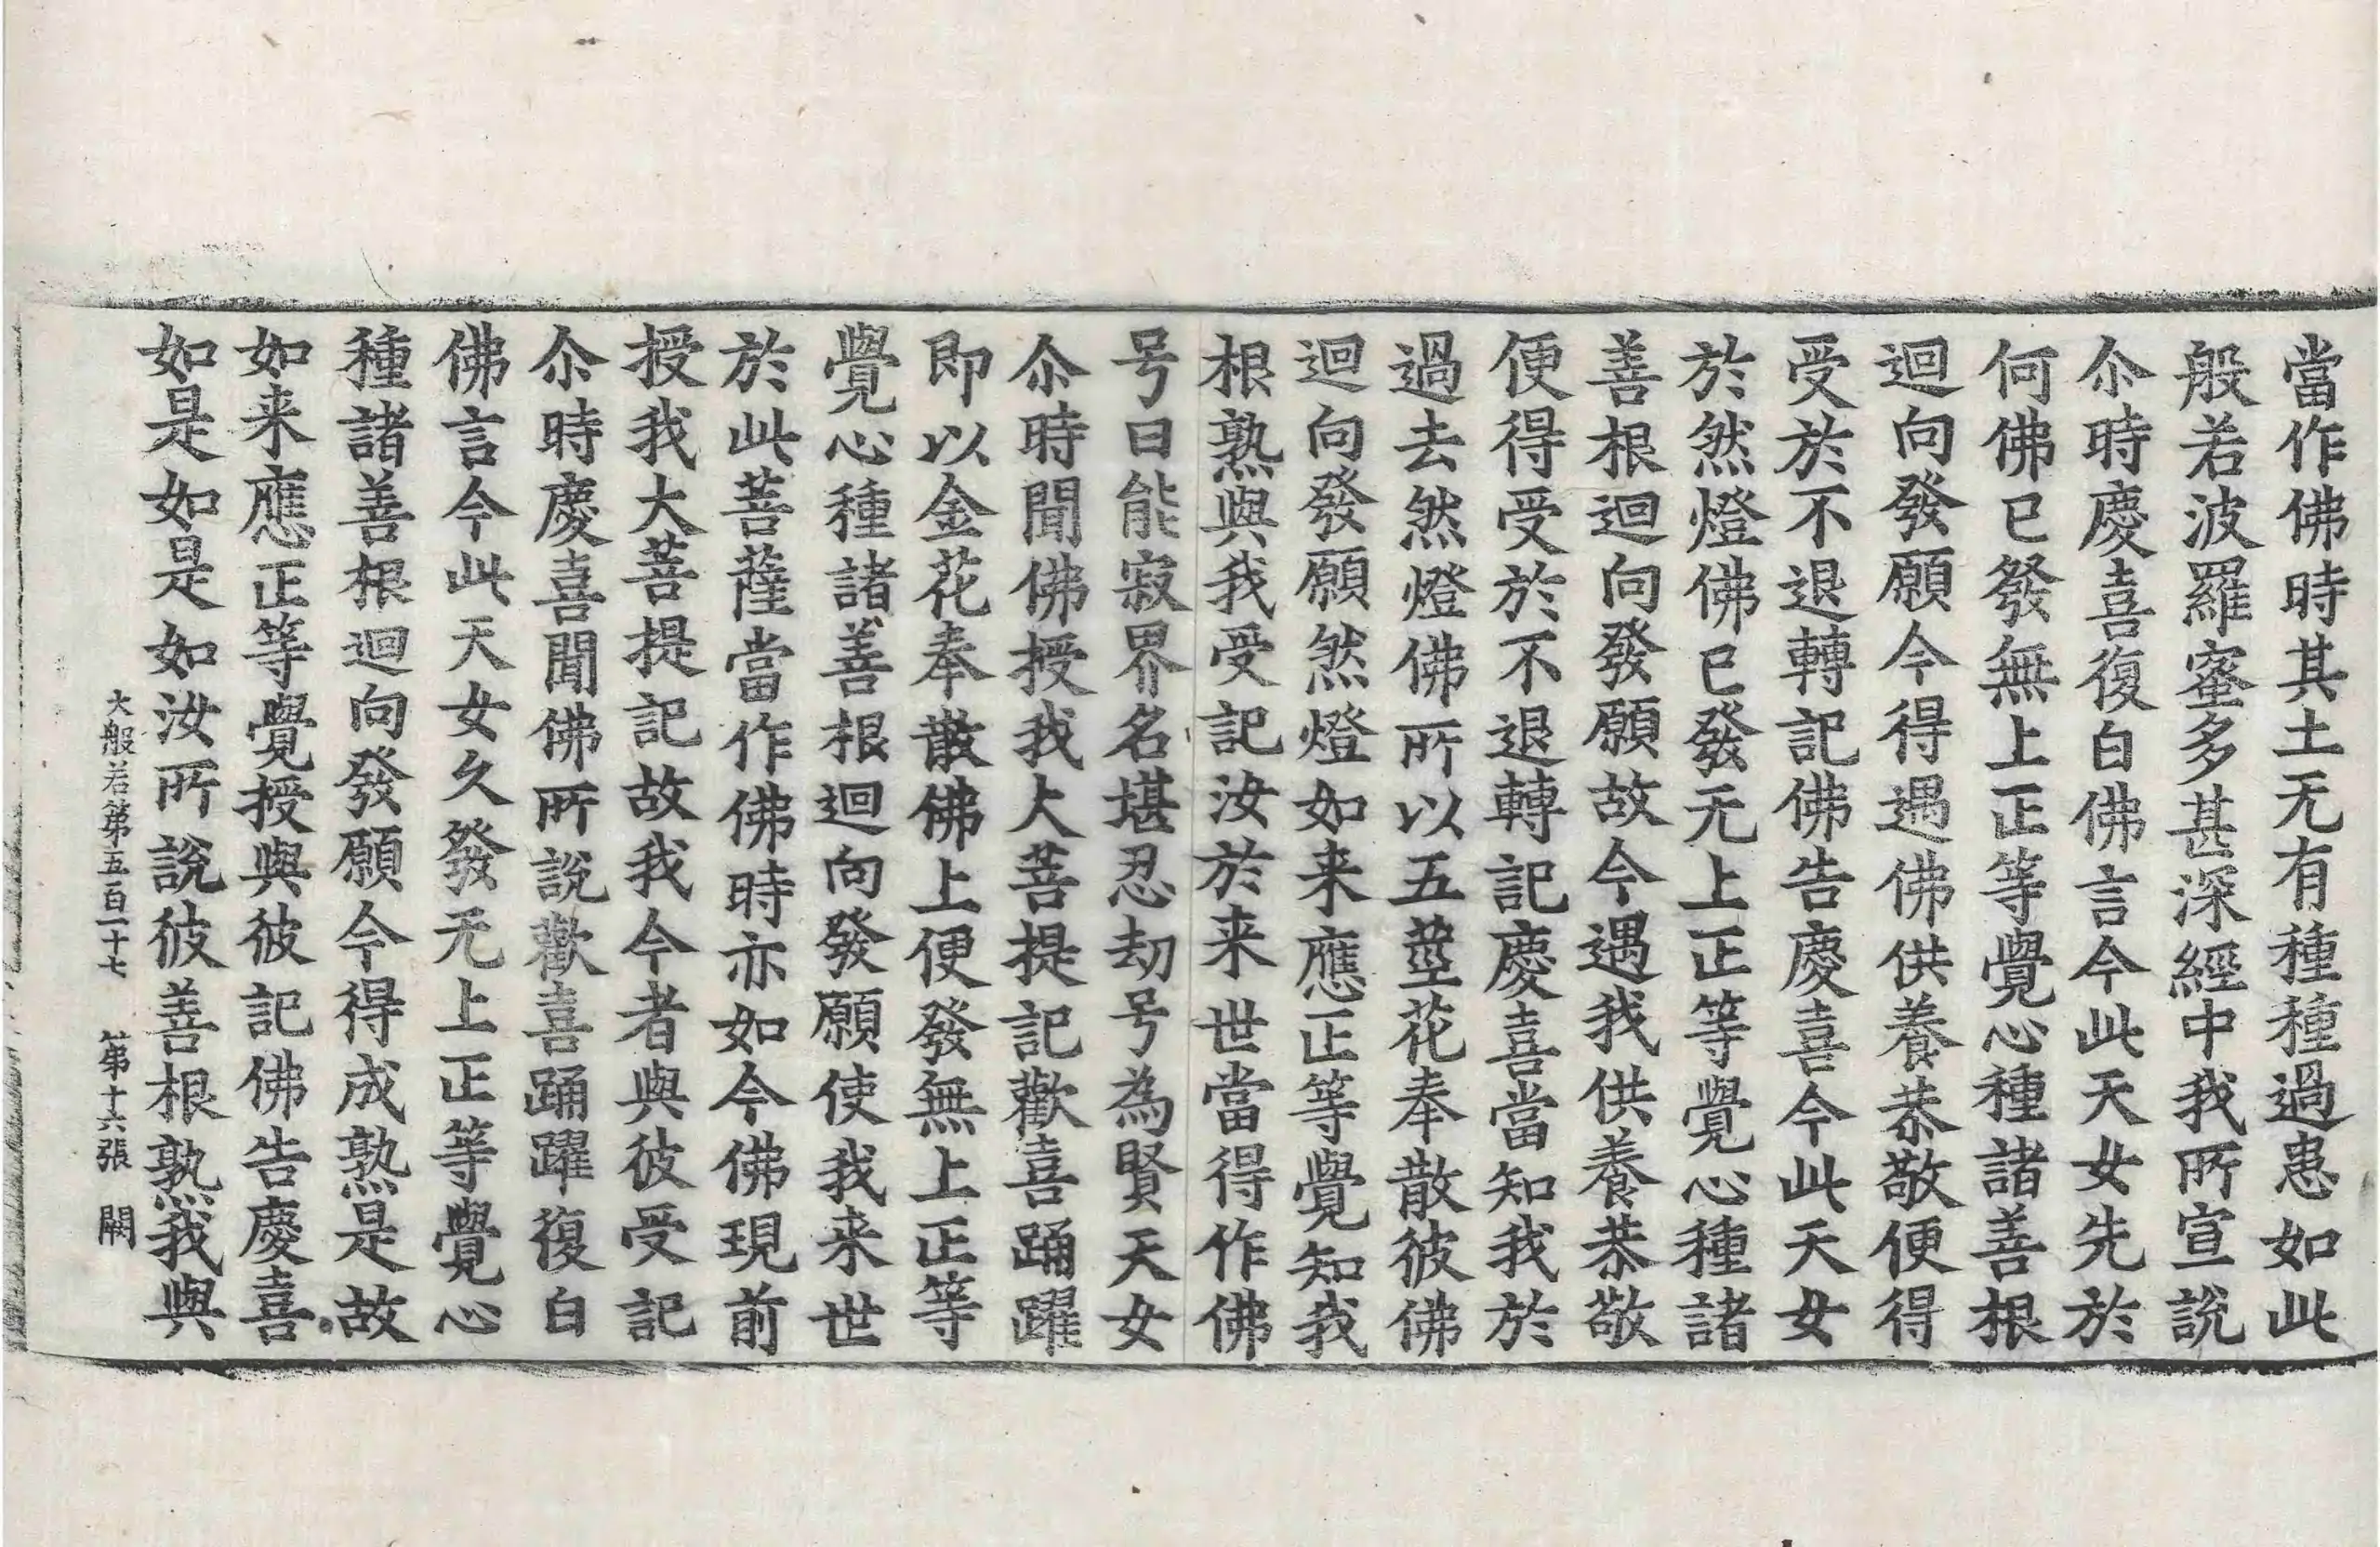 當作佛時其土无有種種過患如此
般若波羅蜜多甚深經中我所宣說
尒時慶喜復白佛言今此天女先於
何佛已發無上正等覺心種諸善根
迴向發願今得遇佛供養恭敬便得
受於不退轉記佛告慶喜今此天女
於然燈佛已發无上正等覺心種諸
善根迴向發願故今遇我供養恭敬
便得受於不退轉記慶喜當知我於
過去然燈佛所以五莖花奉散彼佛
迴向發願然燈如来應正等覺知我
根熟與我受記汝於来世當得作佛
号曰能寂界名堪忍劫号為賢天女
尒時聞佛授我大菩提記歡喜踊躍
即以金花奉散佛上便發無上正等
覺心種諸善根迴向發願使我来世
於此菩薩當作佛時亦如今佛現前
授我大菩提記故我今者與彼受記
尒時慶喜聞佛所說歡喜踊躍復白
佛言今此天女久發无上正等覺心
種諸善根迴向發願今得成熟是故
如来應正等覺授與彼記佛告慶喜
如是如是如汝所說彼善根熟我與
大般若第五百二十七 第十六張 闕